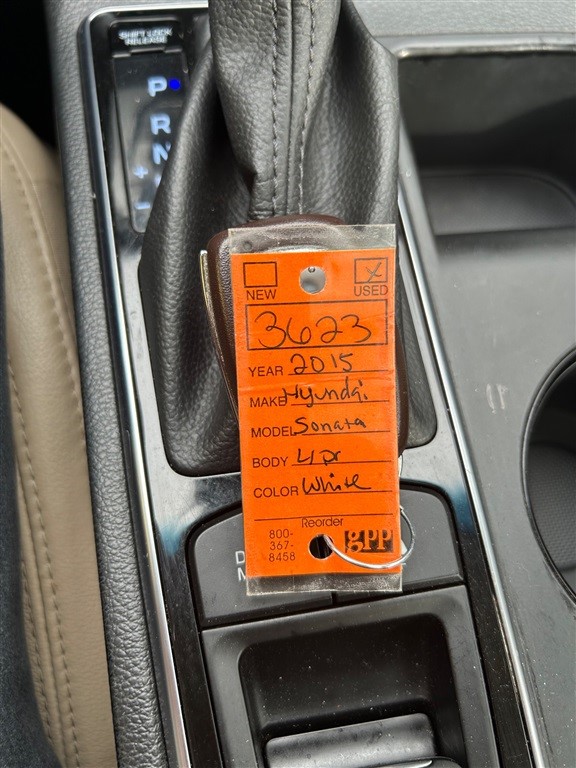 SHIFT LOCK
RELEASE
P
R
N
+
-
X
NEW
USED
3623
YEAR 2015
MAKE Hyundai
MODEL Sonata
BODY 4 Dr
COLOR White
Reorder
800-
367-
8458
gPP
D
M